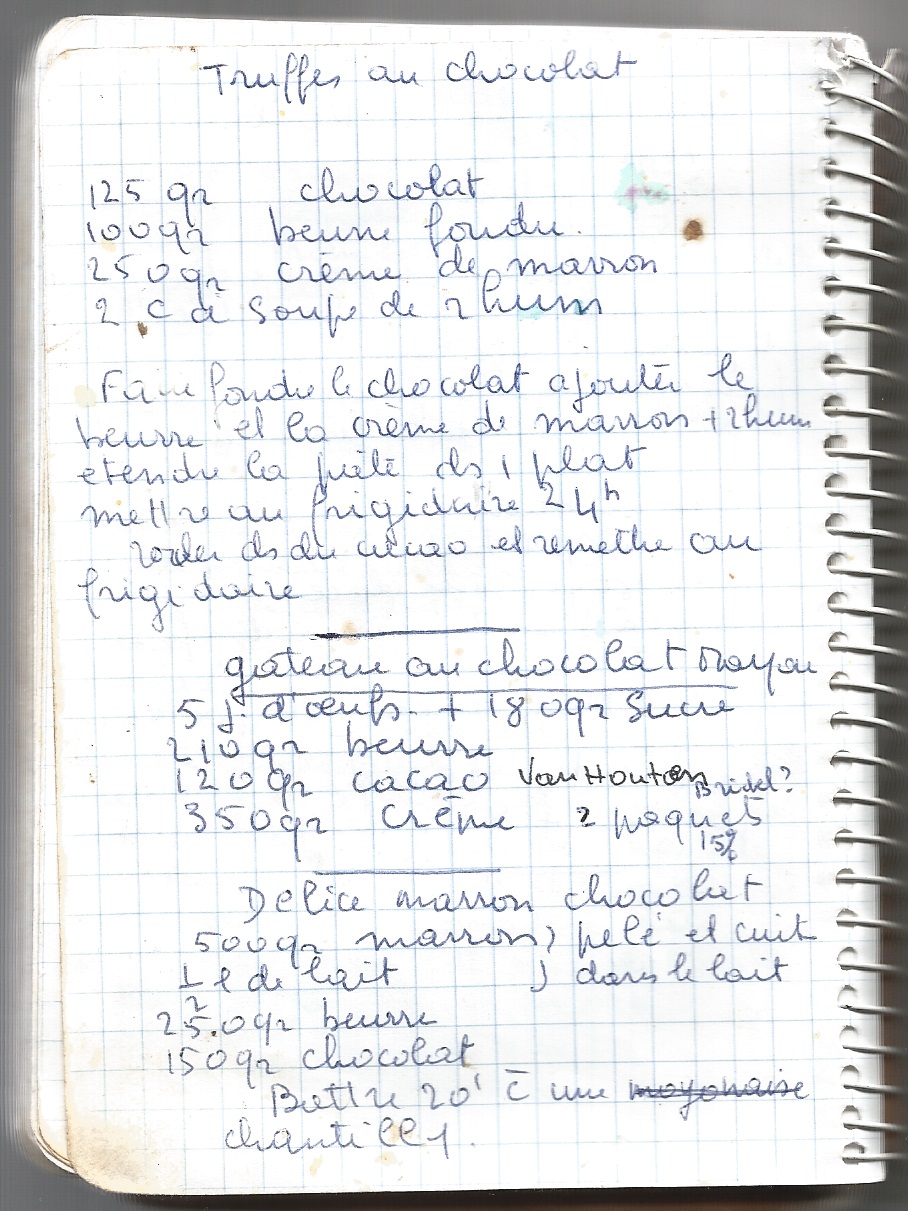 Truffes au chocolat
125 gr chocolat
100gr beurre fondu.
250gr crème de marron
2 c à soupe de rhum
Faire fondre le chocolat ajouter le
beurre et la crème de marron + rhum
etendre la pâte ds 1 plat
mettre au frigidaire 24h
rouler ds du cacao et remettre au
frigidaire
gateau au chocolat
5 j. d'oeufs. + 180gr Sucre
210gr beurre
120gr cacao Van Houten
350gr Crème 2 paquets
15%
Delice marron chocolat
500gr marron) pelé et cuit
1/2 l de lait ) dans le lait
250gr beurre
150gr chocolat
Battre 20' c̄ une mayonaise
chantilly.